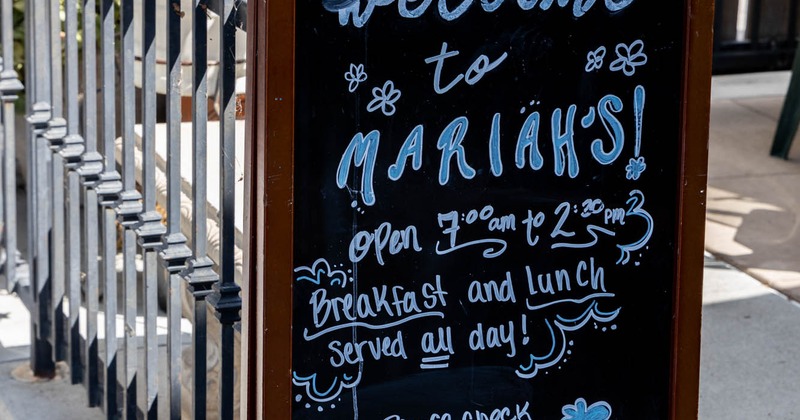 Welcome
to
MARIÄH'S!
Open 7:00am to 2:30pm
Breakfast and lunch
served all day!
check